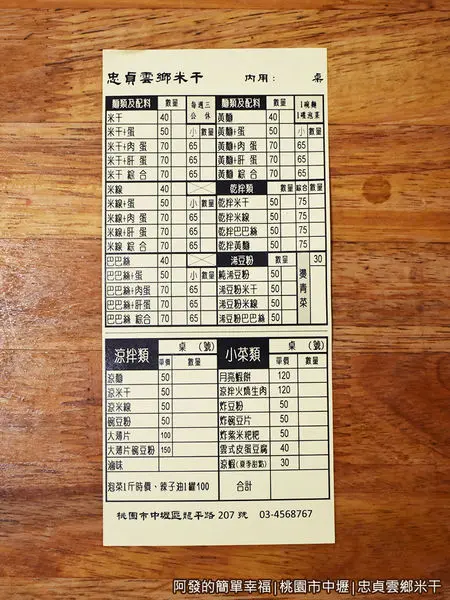 忠貞雲鄉米干 內用： 桌
麵類及配料 數量 每週三公休 麵類及配料 數量 1碗麵1碟泡菜
米干 40 黃麵 40
米干+蛋 50 小 數量 黃麵+蛋 50 小 數量
米干+肉 蛋 70 65 黃麵+肉 蛋 70 65
米干+肝 蛋 70 65 黃麵+肝 蛋 70 65
米干 綜合 70 65 黃麵 綜合 70 65
米線 40 乾拌類 數量 綜合 數量
米線+蛋 50 小 數量 乾拌米干 50 75
米線+肉 蛋 70 65 乾拌米線 50 75
米線+肝 蛋 70 65 乾拌巴巴絲 50 75
米線 綜合 70 65 乾拌黃麵 50 75
巴巴絲 40 浠豆粉 數量 燙青菜 30
巴巴絲+蛋 50 小 數量 純浠豆粉 50
巴巴絲+肉蛋 70 65 浠豆粉米干 50
巴巴絲+肝蛋 70 65 浠豆粉米線 50
巴巴絲 綜合 70 65 浠豆粉巴巴絲 50
涼拌類 桌 (號) 小菜類 桌 (號)
單價 數量 單價 數量
涼麵 50 月亮蝦餅 120
涼米干 50 涼拌火燒生肉 120
涼米線 50 炸豆粉 50
碗豆粉 50 炸碗豆片 50
大薄片 100 炸紫米粑粑 50
大薄片碗豆粉 150 雲式皮蛋豆腐 40
滷味 涼蝦(夏季甜點) 30
泡菜1斤時價、辣子油1罐100 合計
桃園市中壢區龍平路207號 03-4568767
阿發的簡單幸福|桃園市中壢|忠貞雲鄉米干